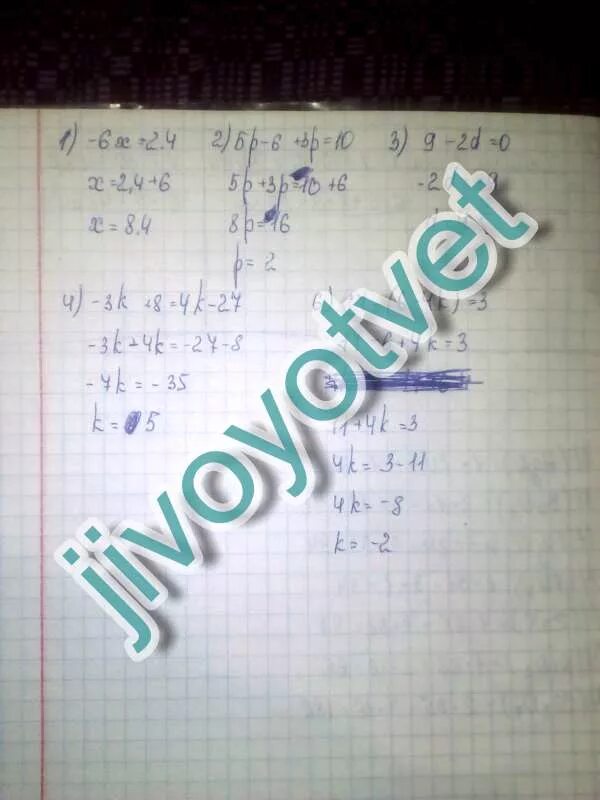 1) -6x = 2.4
x = 2,4+6
x = 8.4
2) 5p-6 +3p=10
5p+3p=10+6
8p=16
p= 2
3) 9 -2d =0
-2
4) -3k +8=4k-27
-3k-4k=-27-8
-7k = -35
k= 5
=3
+4k=3
11+4k=3
4k= 3-11
4k= -8
k= -2
jivoyotvet